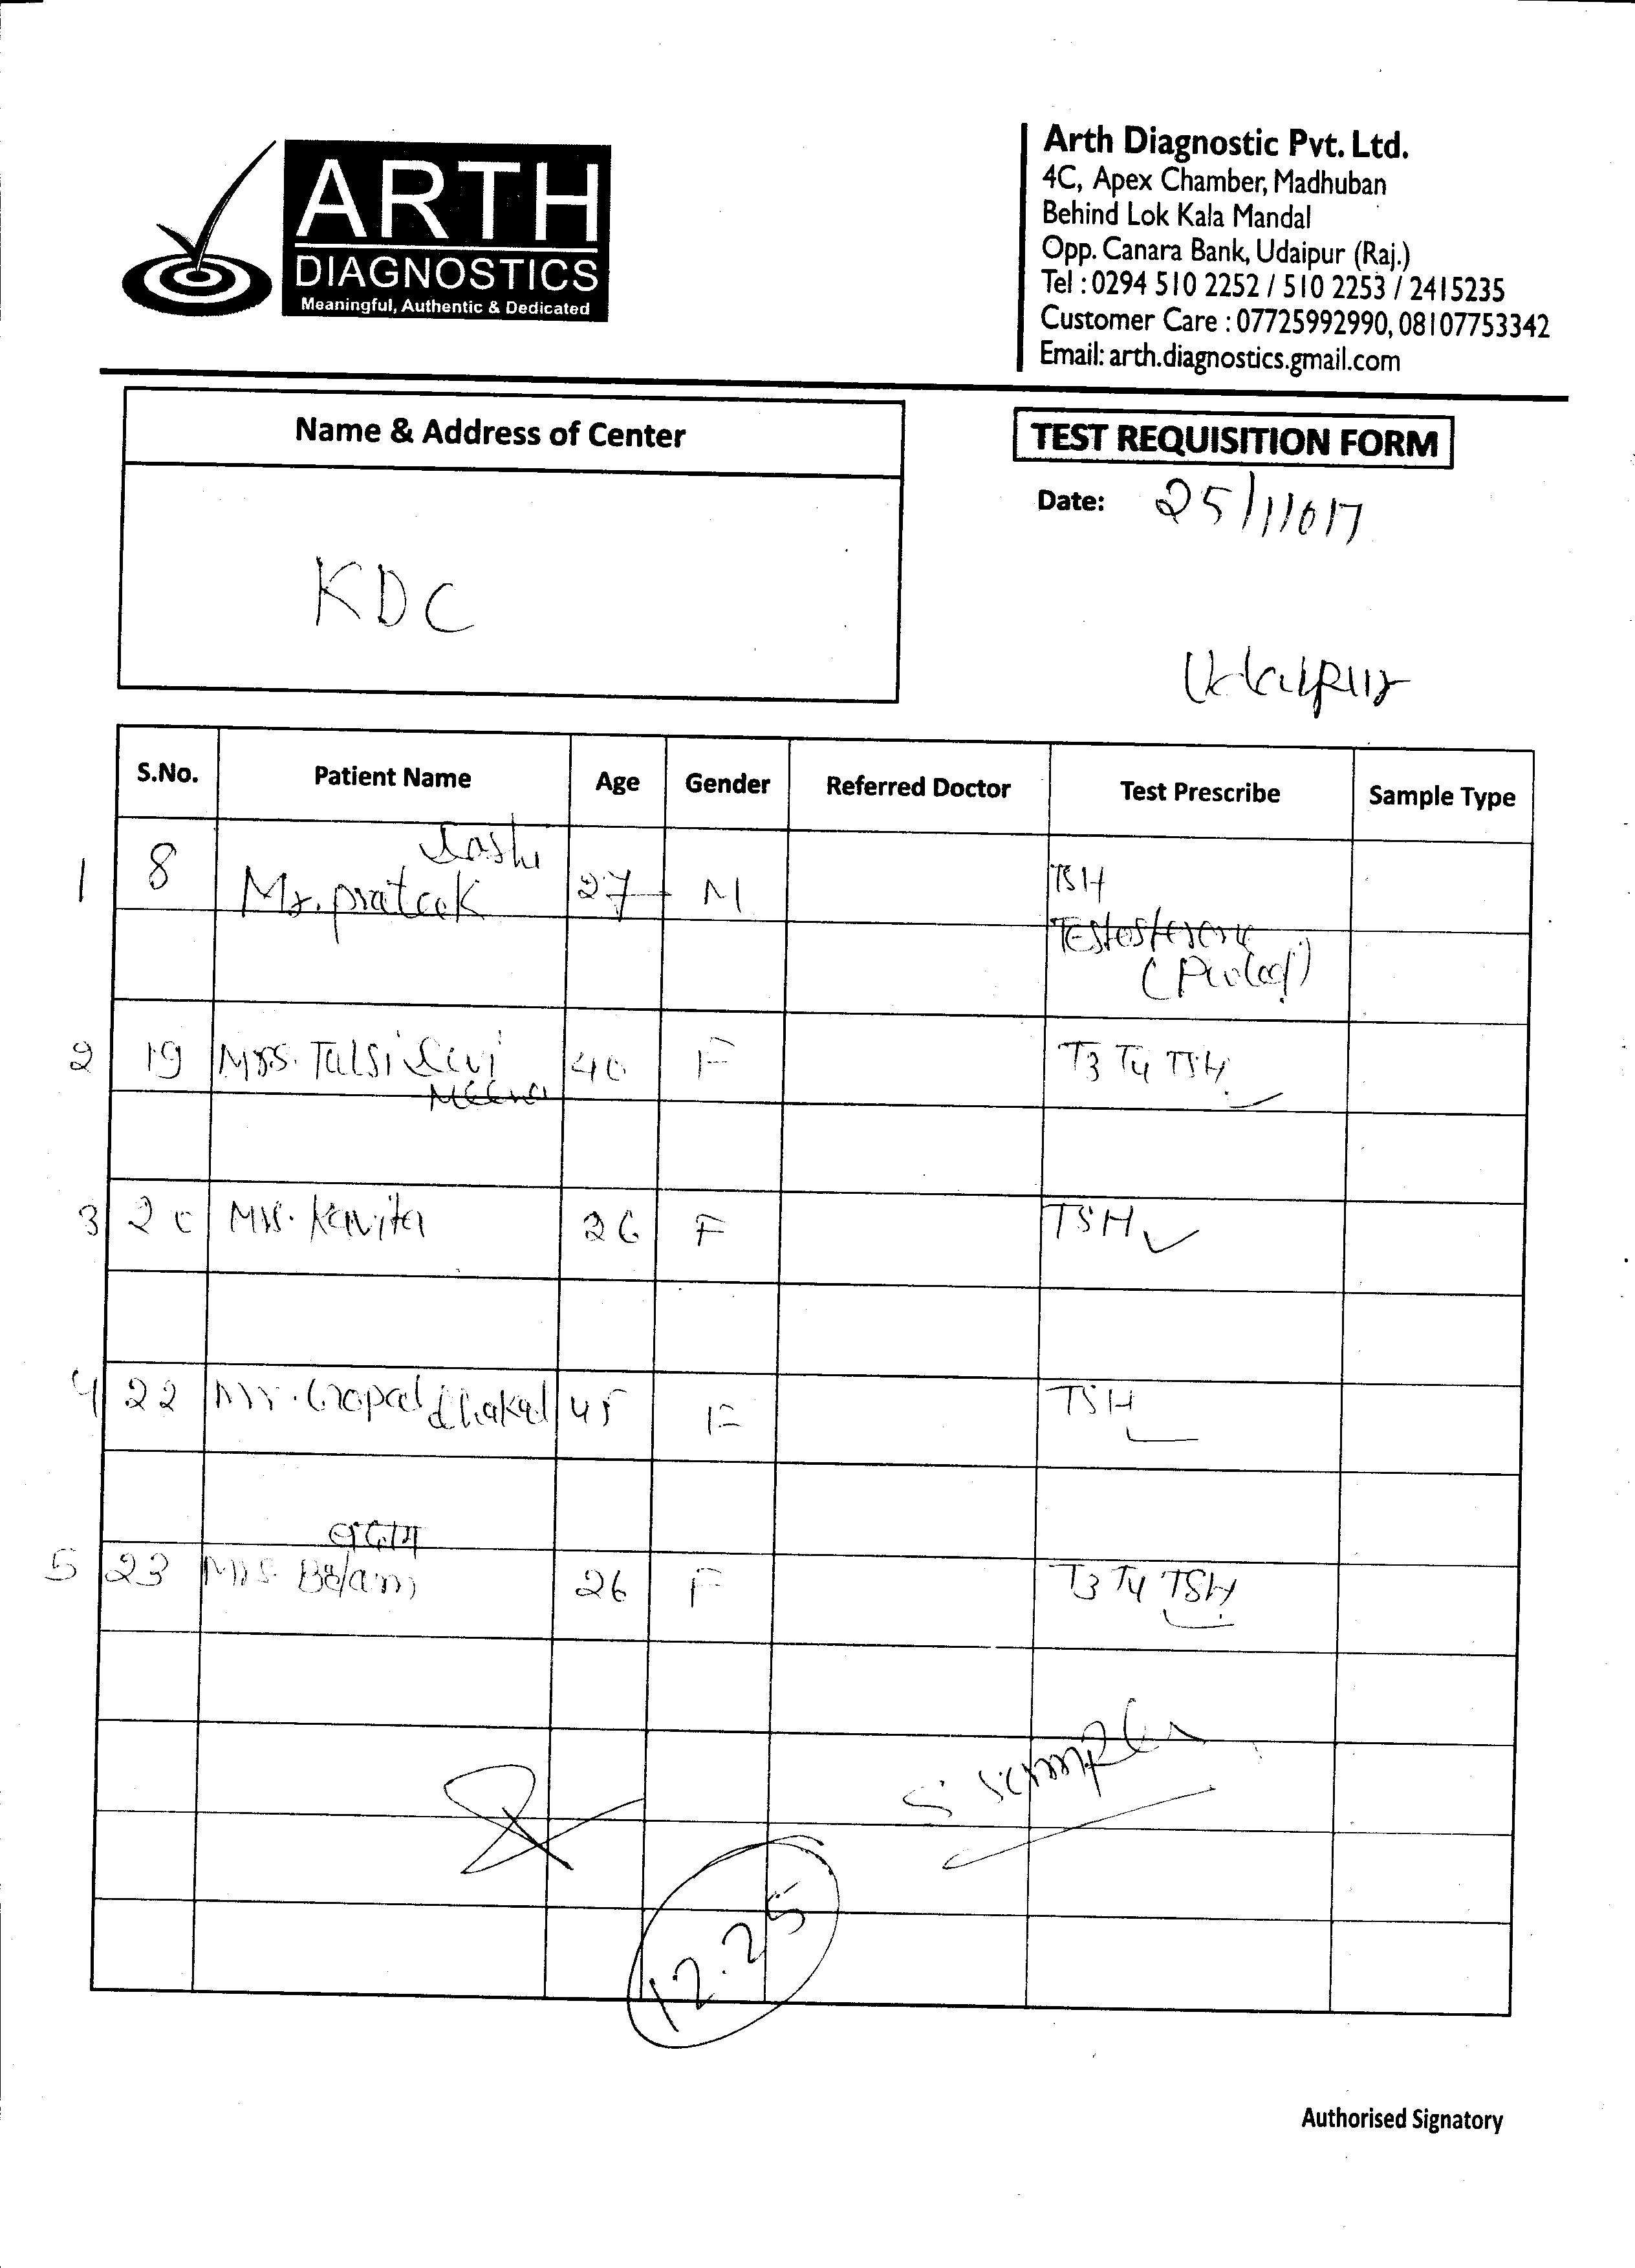 ARTH
DIAGNOSTICS
Meaningful, Authentic & Dedicated
Arth Diagnostic Pvt. Ltd.
4C, Apex Chamber, Madhuban
Behind Lok Kala Mandal
Opp. Canara Bank, Udaipur (Raj.)
Tel : 0294 510 2252 / 510 2253 / 2415235
Customer Care : 07725992990, 08107753342
Email: arth.diagnostics.gmail.com
Name & Address of Center
KDC
TEST REQUISITION FORM
Date: 25/11017
Udaipur
S.No. Patient Name Age Gender Referred Doctor Test Prescribe Sample Type
1 8 Mr. prateek 27 M TSH
Testosterone
2 19 Mrs. Talsi Devi 40 F T3 T4 TSH
Meena
3 20 Mrs. Kavita 26 F TSH
4 22 Mr. Gopal dhakad 45 F TSH
बदाम
5 23 Mrs. Badam 26 F T3 T4 TSH
5 samples
12.25
Authorised Signatory